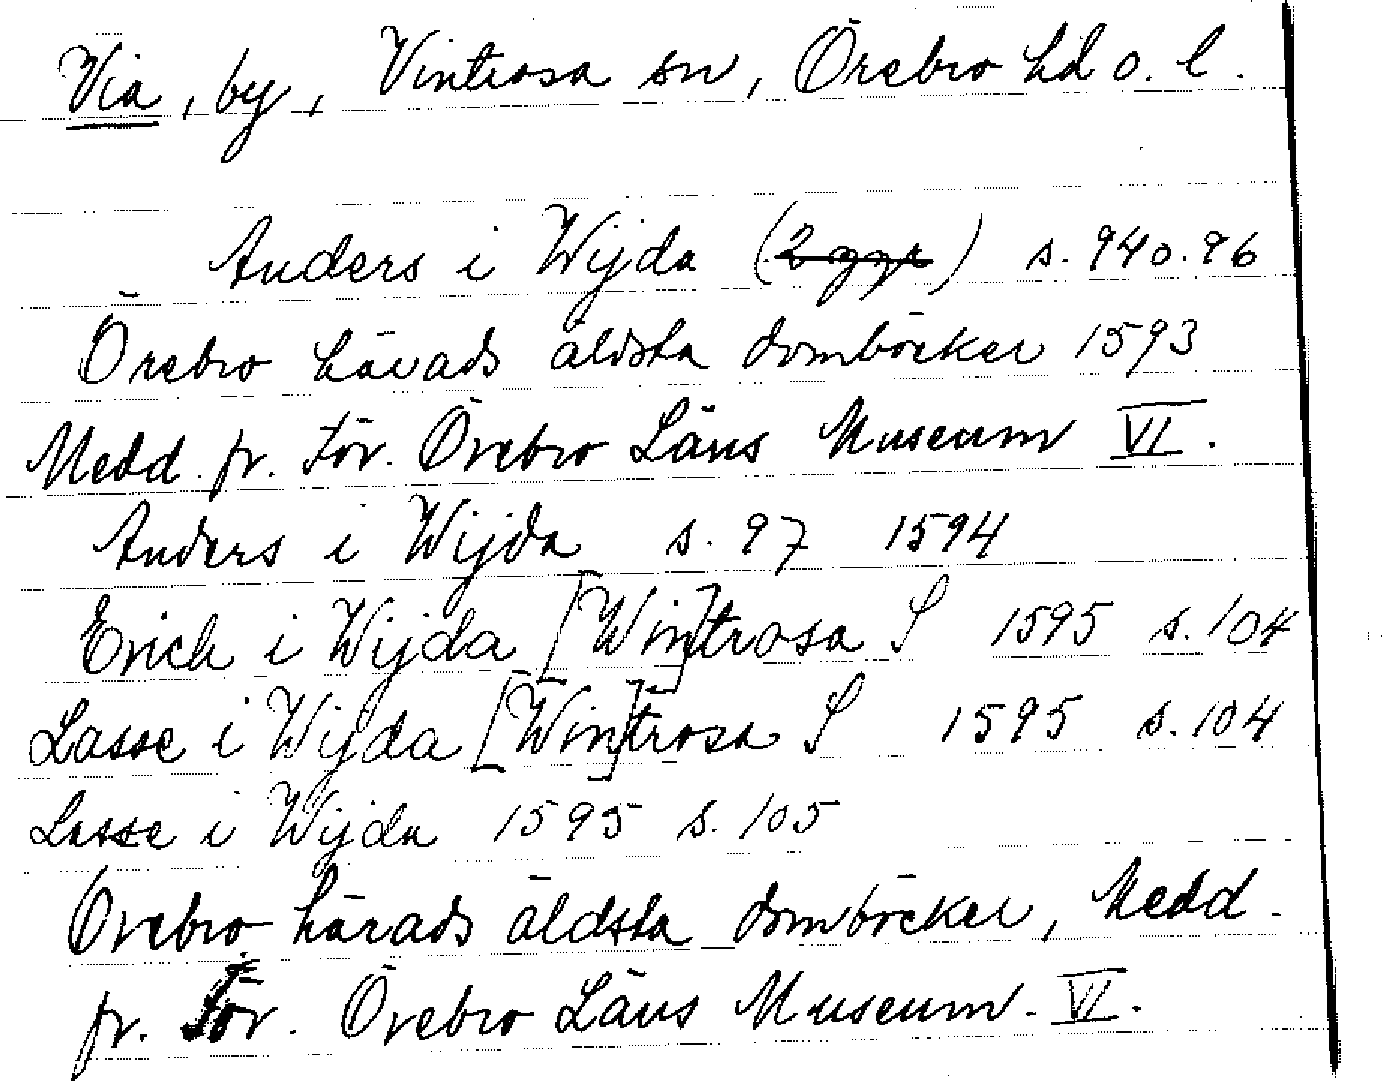 Via, by, Vintrosa sn, Örebro hd o. l.
Anders i Wijda (2 ggr) s. 94 o. 96
Örebro härads äldsta domböcker 1593
Medd. fr. För. Örebro Läns Museum VI.
Anders i Wijda s. 97 1594
Erich i Wijda [Win]trosa S 1595 s. 104
Lasse i Wijda [Win]trosa S 1595 s. 104
Lasse i Wijda 1595 s. 105
Örebro härads äldsta domböcker, Medd.
fr. För. Örebro Läns Museum. VI.